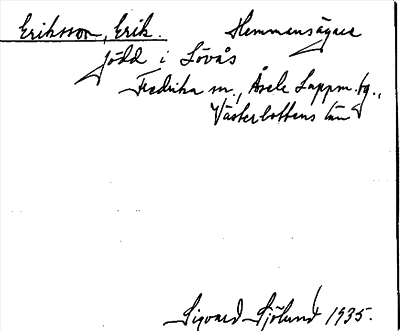 Eriksson, Erik. Hemmansägare
född i Lövås
Fredrika sn., Åsele Lappm.tg.,
Västerbottens län
Sigvard Sjölund 1935.